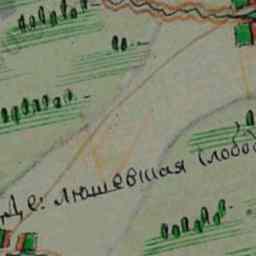 Де: люшевшая слобо